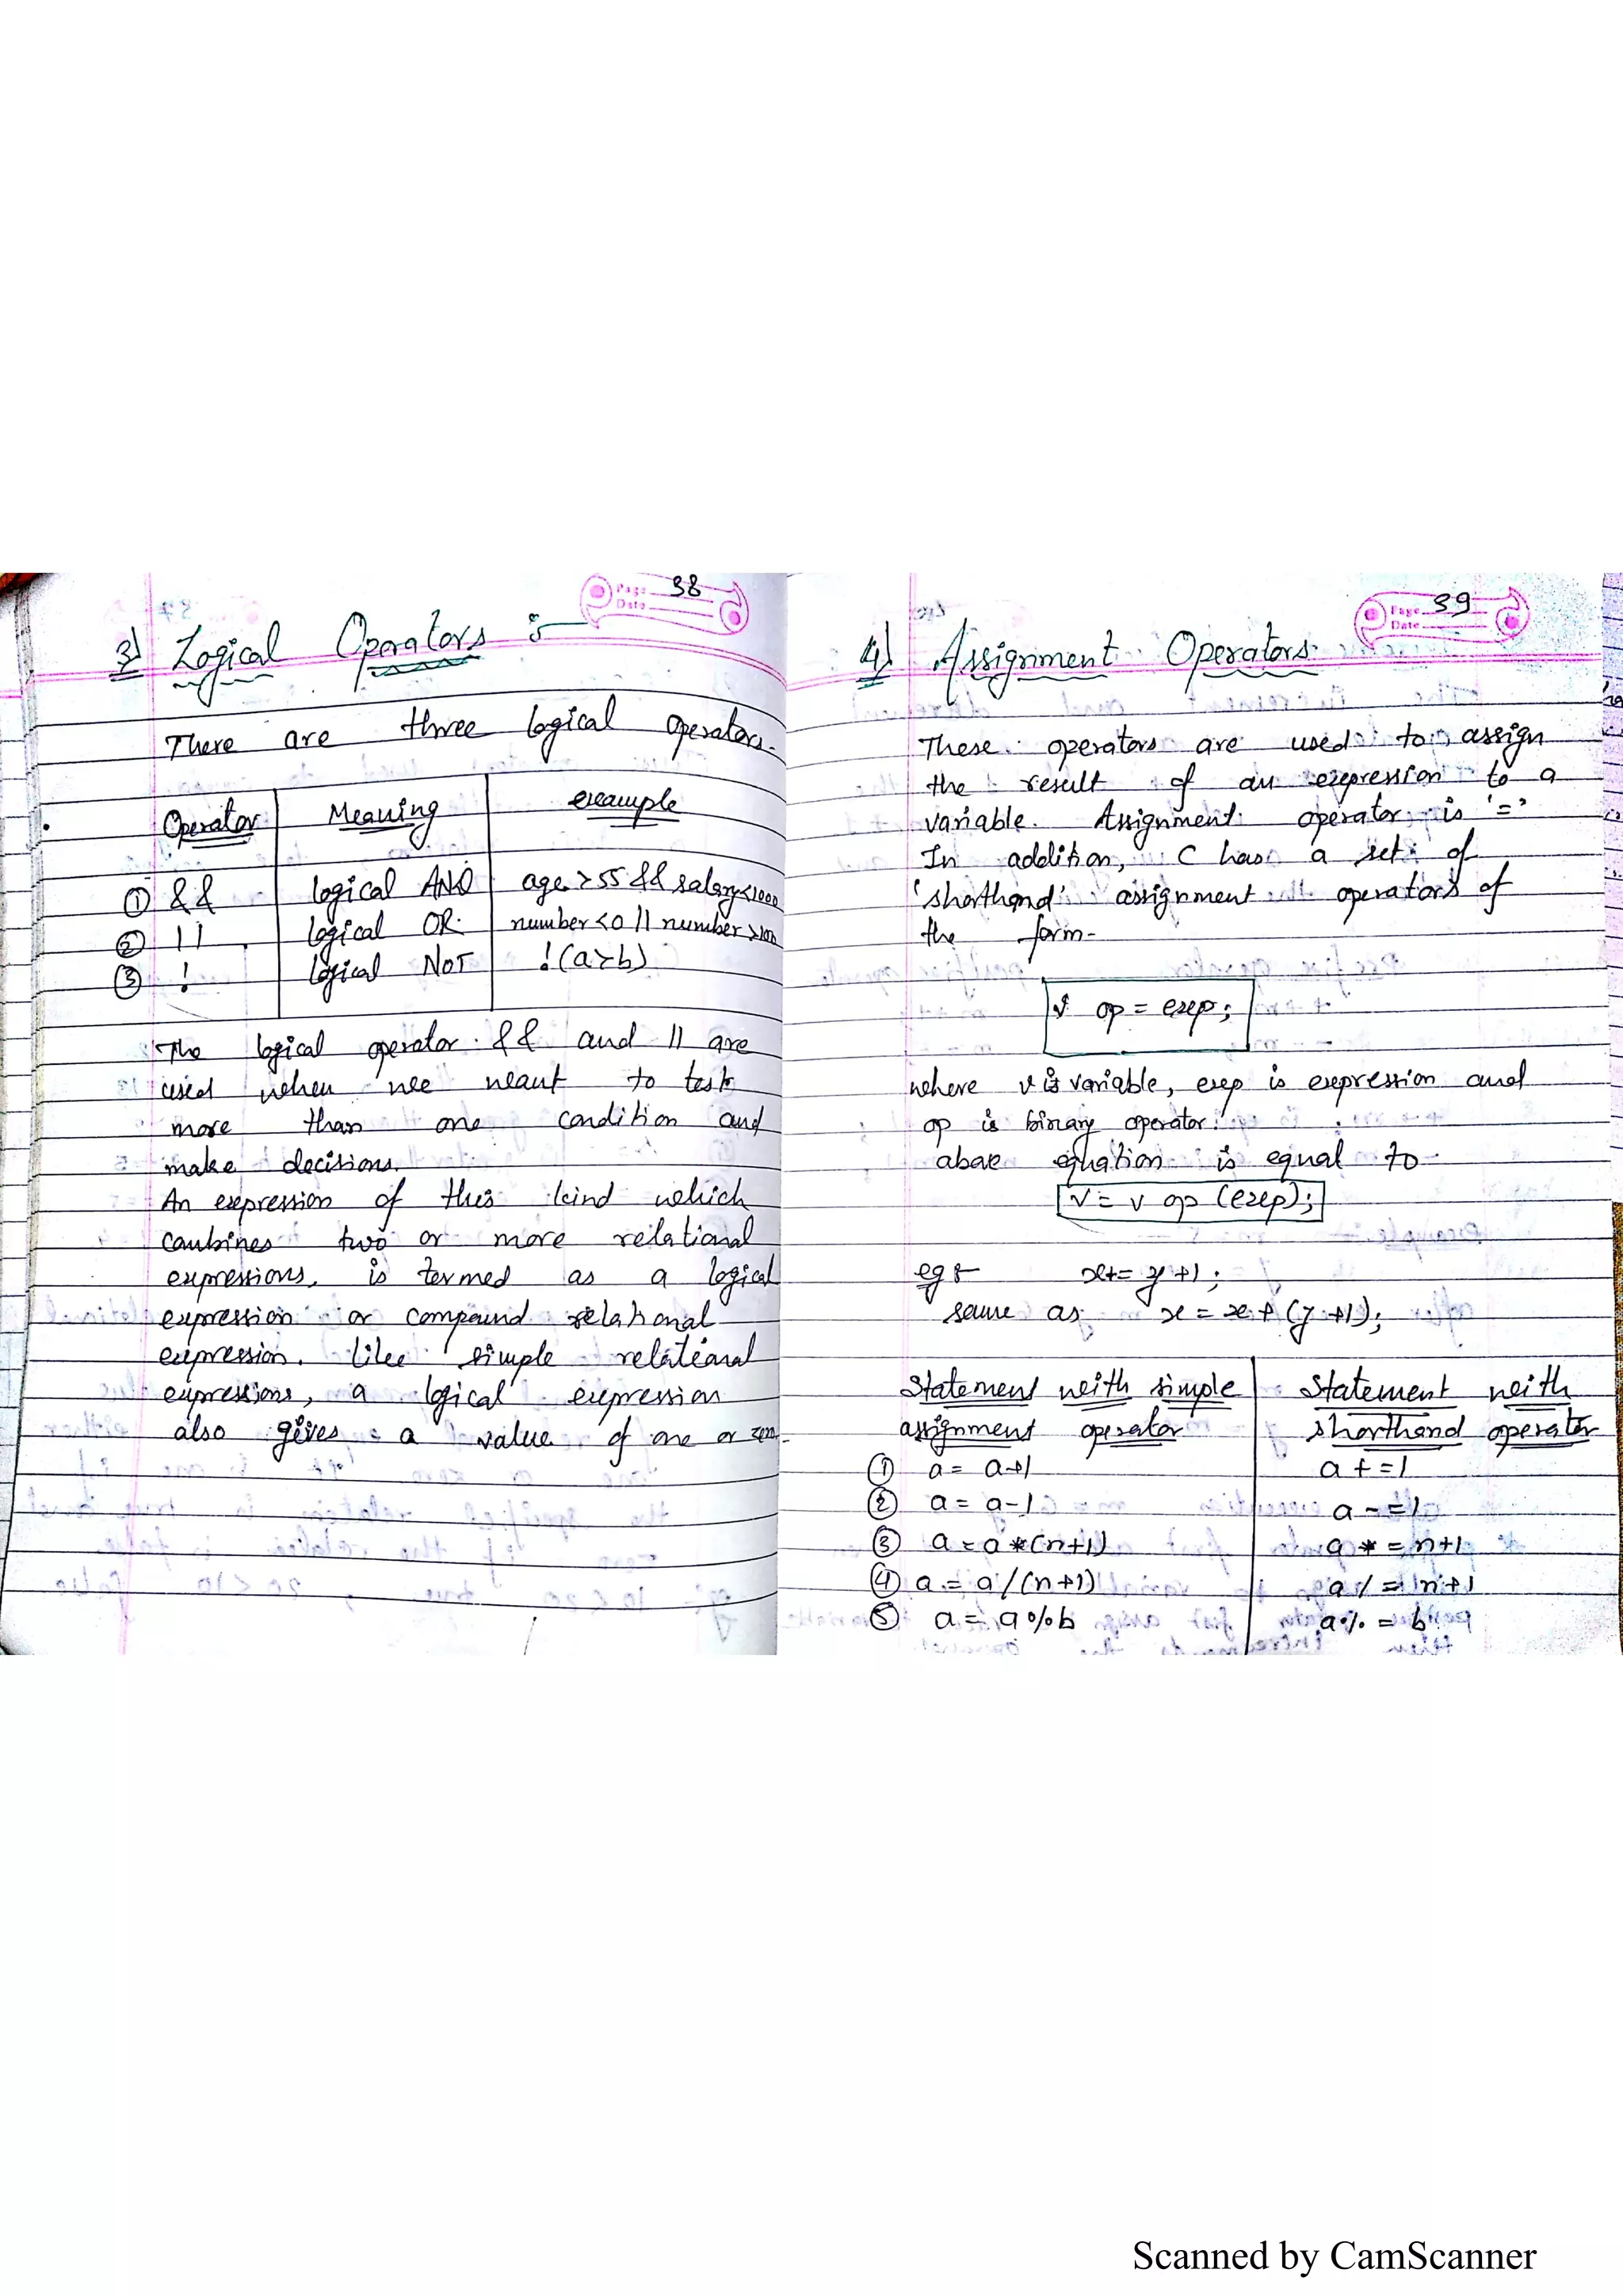 Page 38
Date
3) Logical Operators :-
There are three logical operators.
Operator Meaning example
① && logical AND age > 55 && salary<1000
② || logical OR number<0 || number>100
③ ! logical NOT !(a>b)
The logical operator && and || are
used when we want to test
more than one condition and
make decisions.
An expression of this kind which
combines two or more relational
expressions, is termed as a logical
expression or compound relational
expression. like simple relational
expressions, a logical expression
also gives a value of one or zero.
Page 39
Date
4) Assignment Operators.
These operators are used to assign
the result of an expression to a
variable. Assignment operator is '='
In addition, C has a set of
'shorthand' assignment operators of
the form-
v op = exp;
where v is variable, exp is expression and
op is binary operator.
above equation is equal to
v = v op (exp);
eg :- x+= y+1;
same as x = x+(y+1);
Statement with simple Statement with
assignment operator shorthand operator
① a = a+1 a+=1
② a = a-1 a-=1
③ a = a*(n+1) a*=n+1
④ a = a/(n+1) a/=n+1
⑤ a = a%b a%=b
Scanned by CamScanner